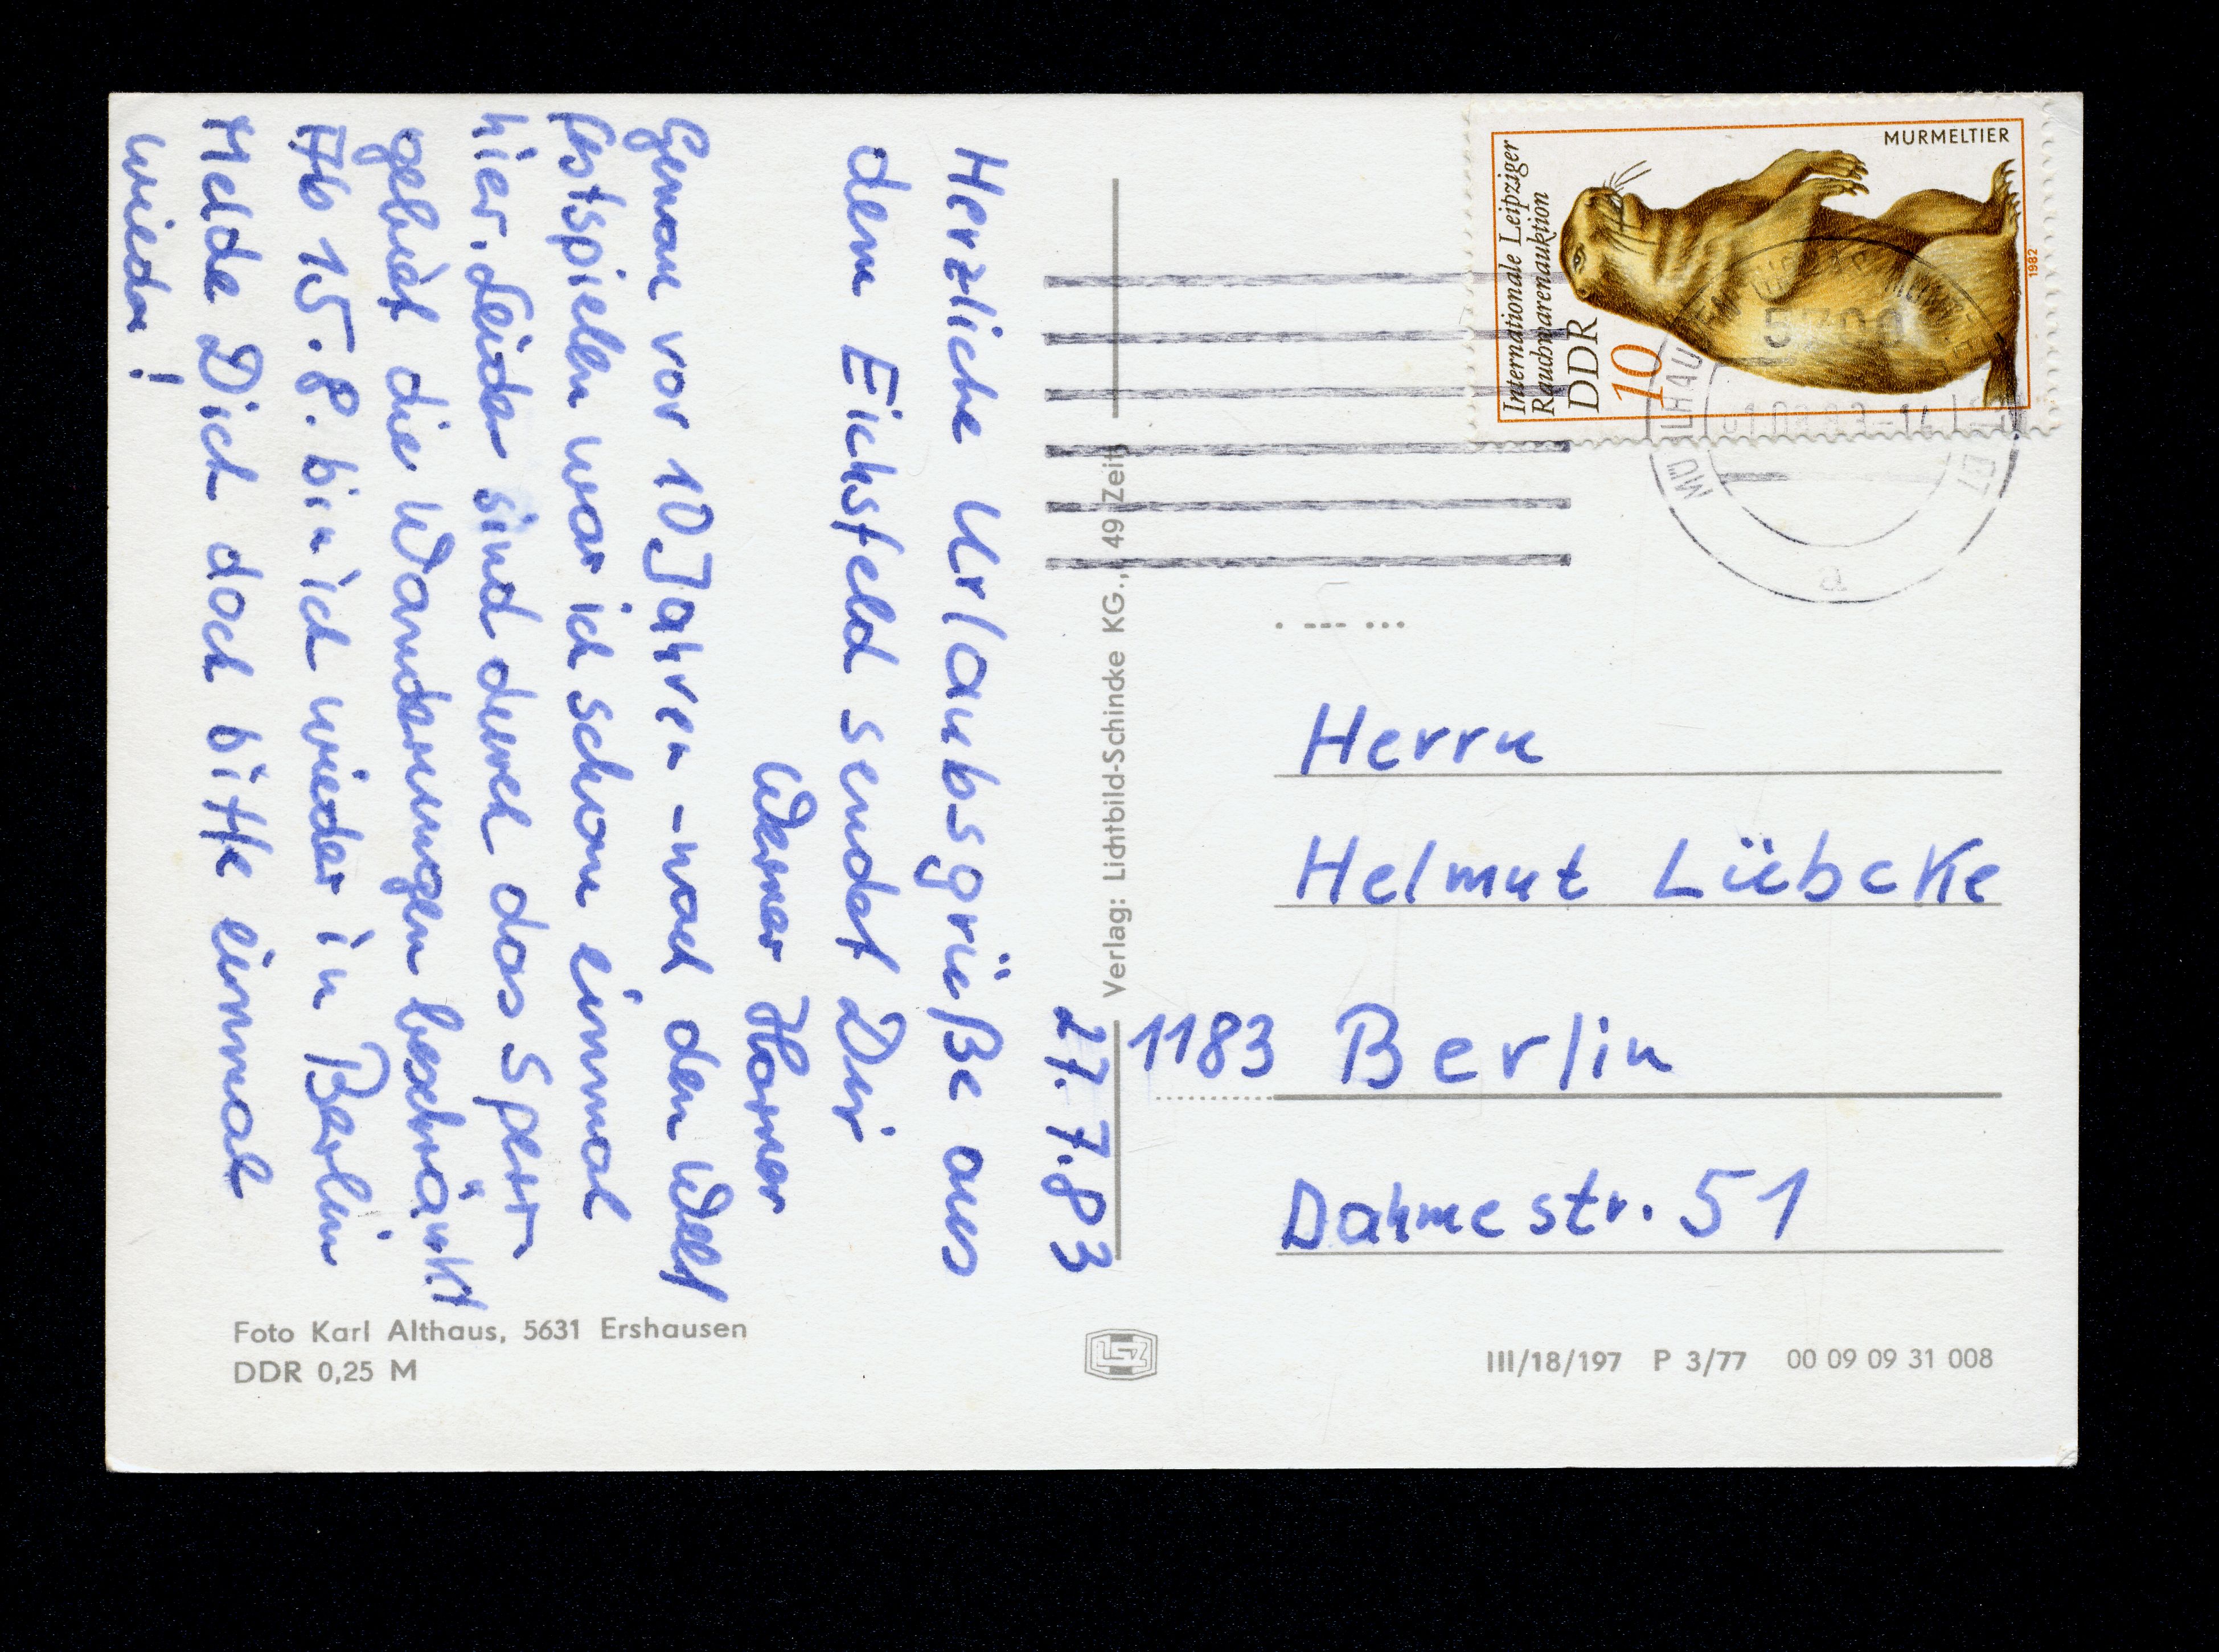 27.7.83
Herzliche Urlaubsgrüße aus
dem Eichsfeld sendet Dir
Werner Horner
Genau vor 10 Jahren - nach den Welt
festspielen war ich schon einmal
hier. Leider sind durch das Sperr-
gebiet die Wanderungen beschränkt
Ab 15.8. bin ich wieder in Berlin
Melde Dich doch bitte einmal
wieder!
Foto Karl Althaus, 5631 Ershausen
DDR 0,25 M
Verlag: Lichtbild-Schincke KG., 49 Zeitz
MURMELTIER
Internationale Leipziger
Rauchwarenauktion
DDR
10
1982
5700
Herrn
Helmut Lübcke
1183 Berlin
Dahmestr. 51
III/18/197 P 3/77 00 09 09 31 008